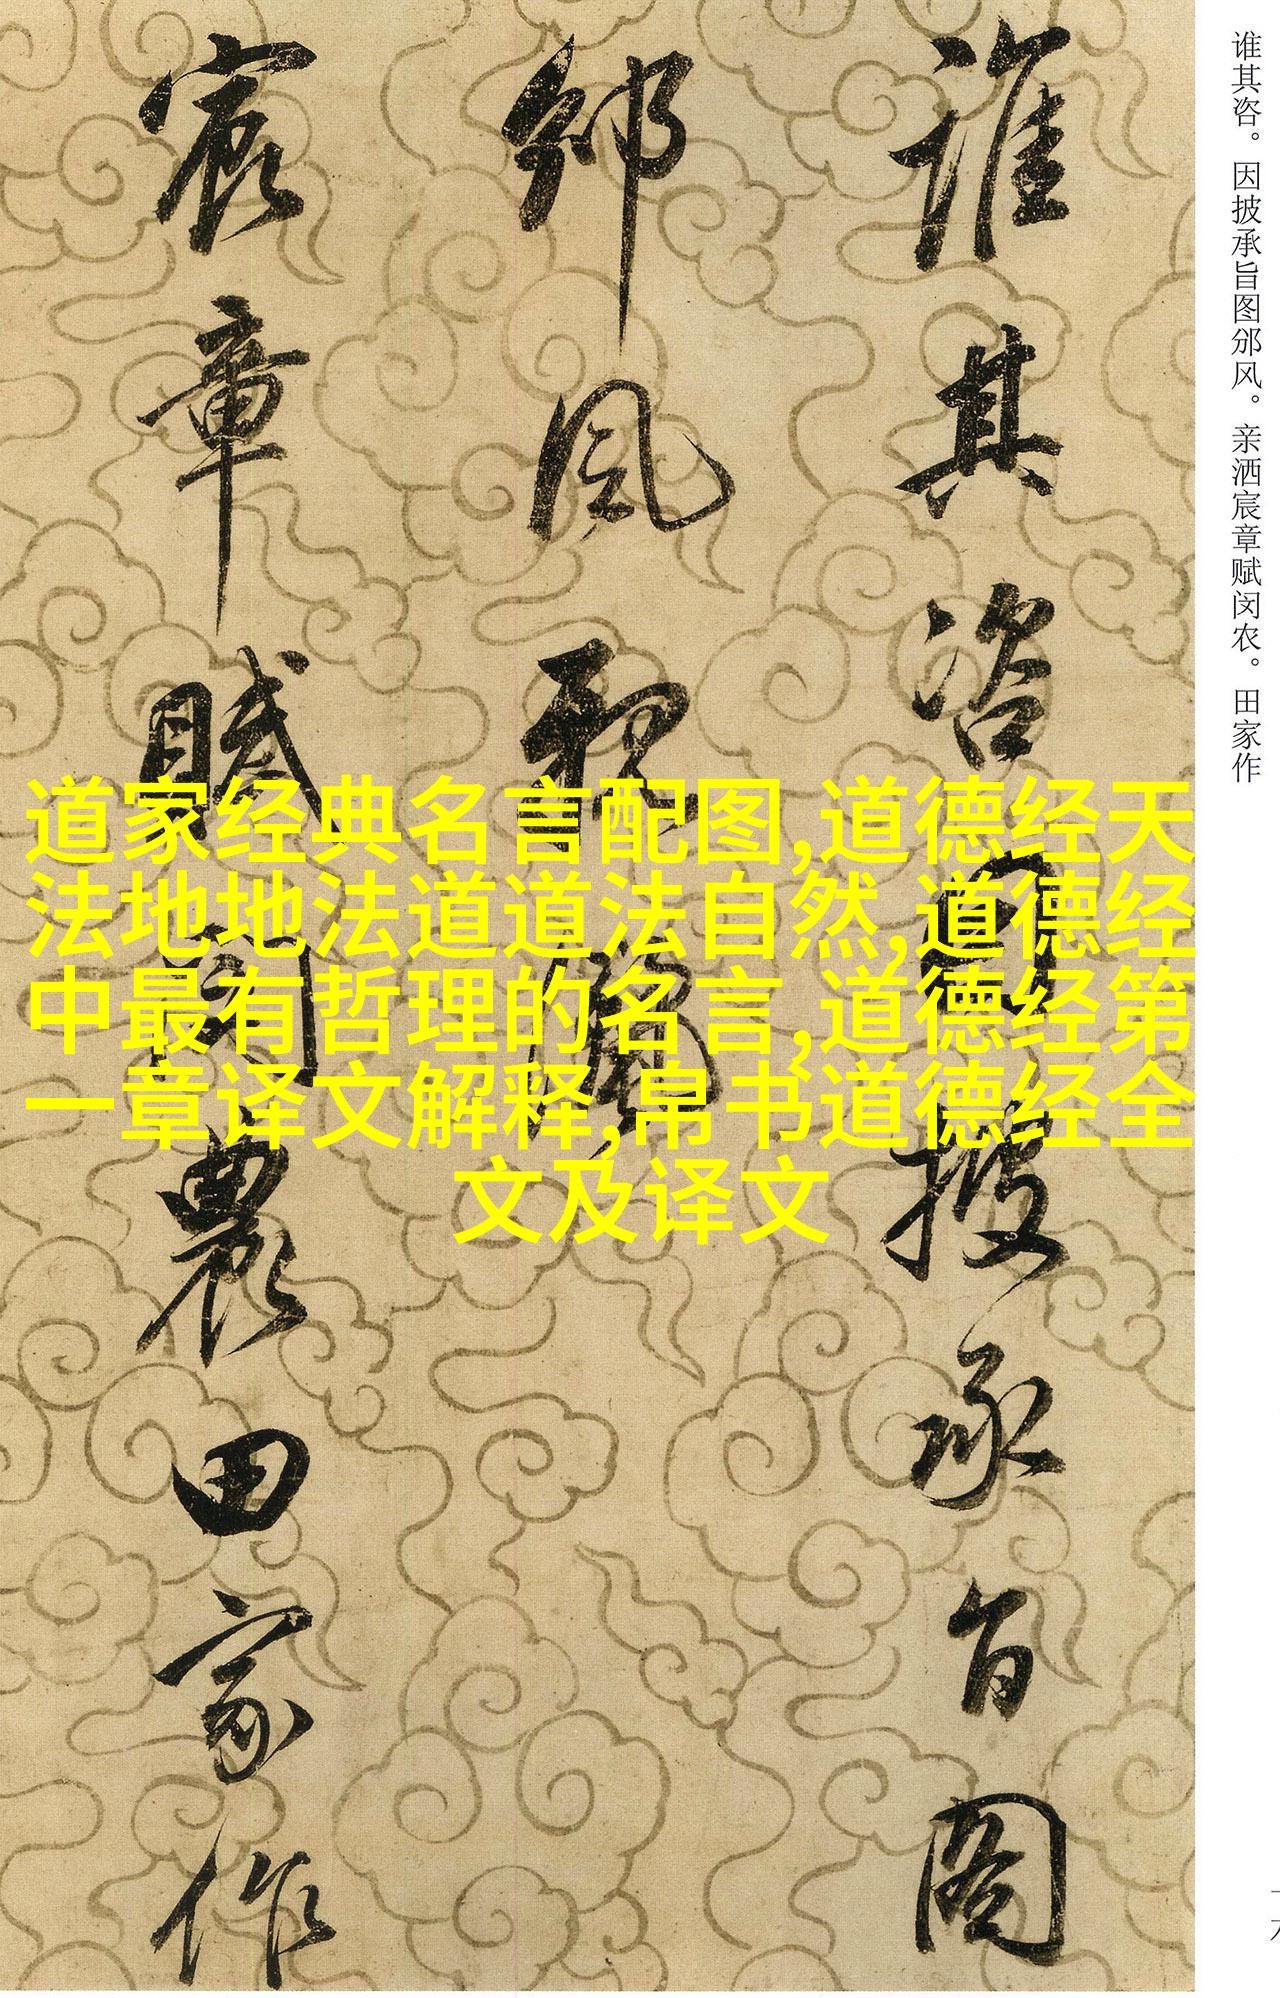 谁其咨。因披承旨图邠风。亲洒宸章赋闵农。田家作
誰其咨因披承旨圖
邠風親灑
宸章賦閔農田家作
道家经典名言配图,道德经天
法地地法道道法自然,道德经
中最有哲理的名言,道德经第
一章译文解释,帛书道德经全
文及译文